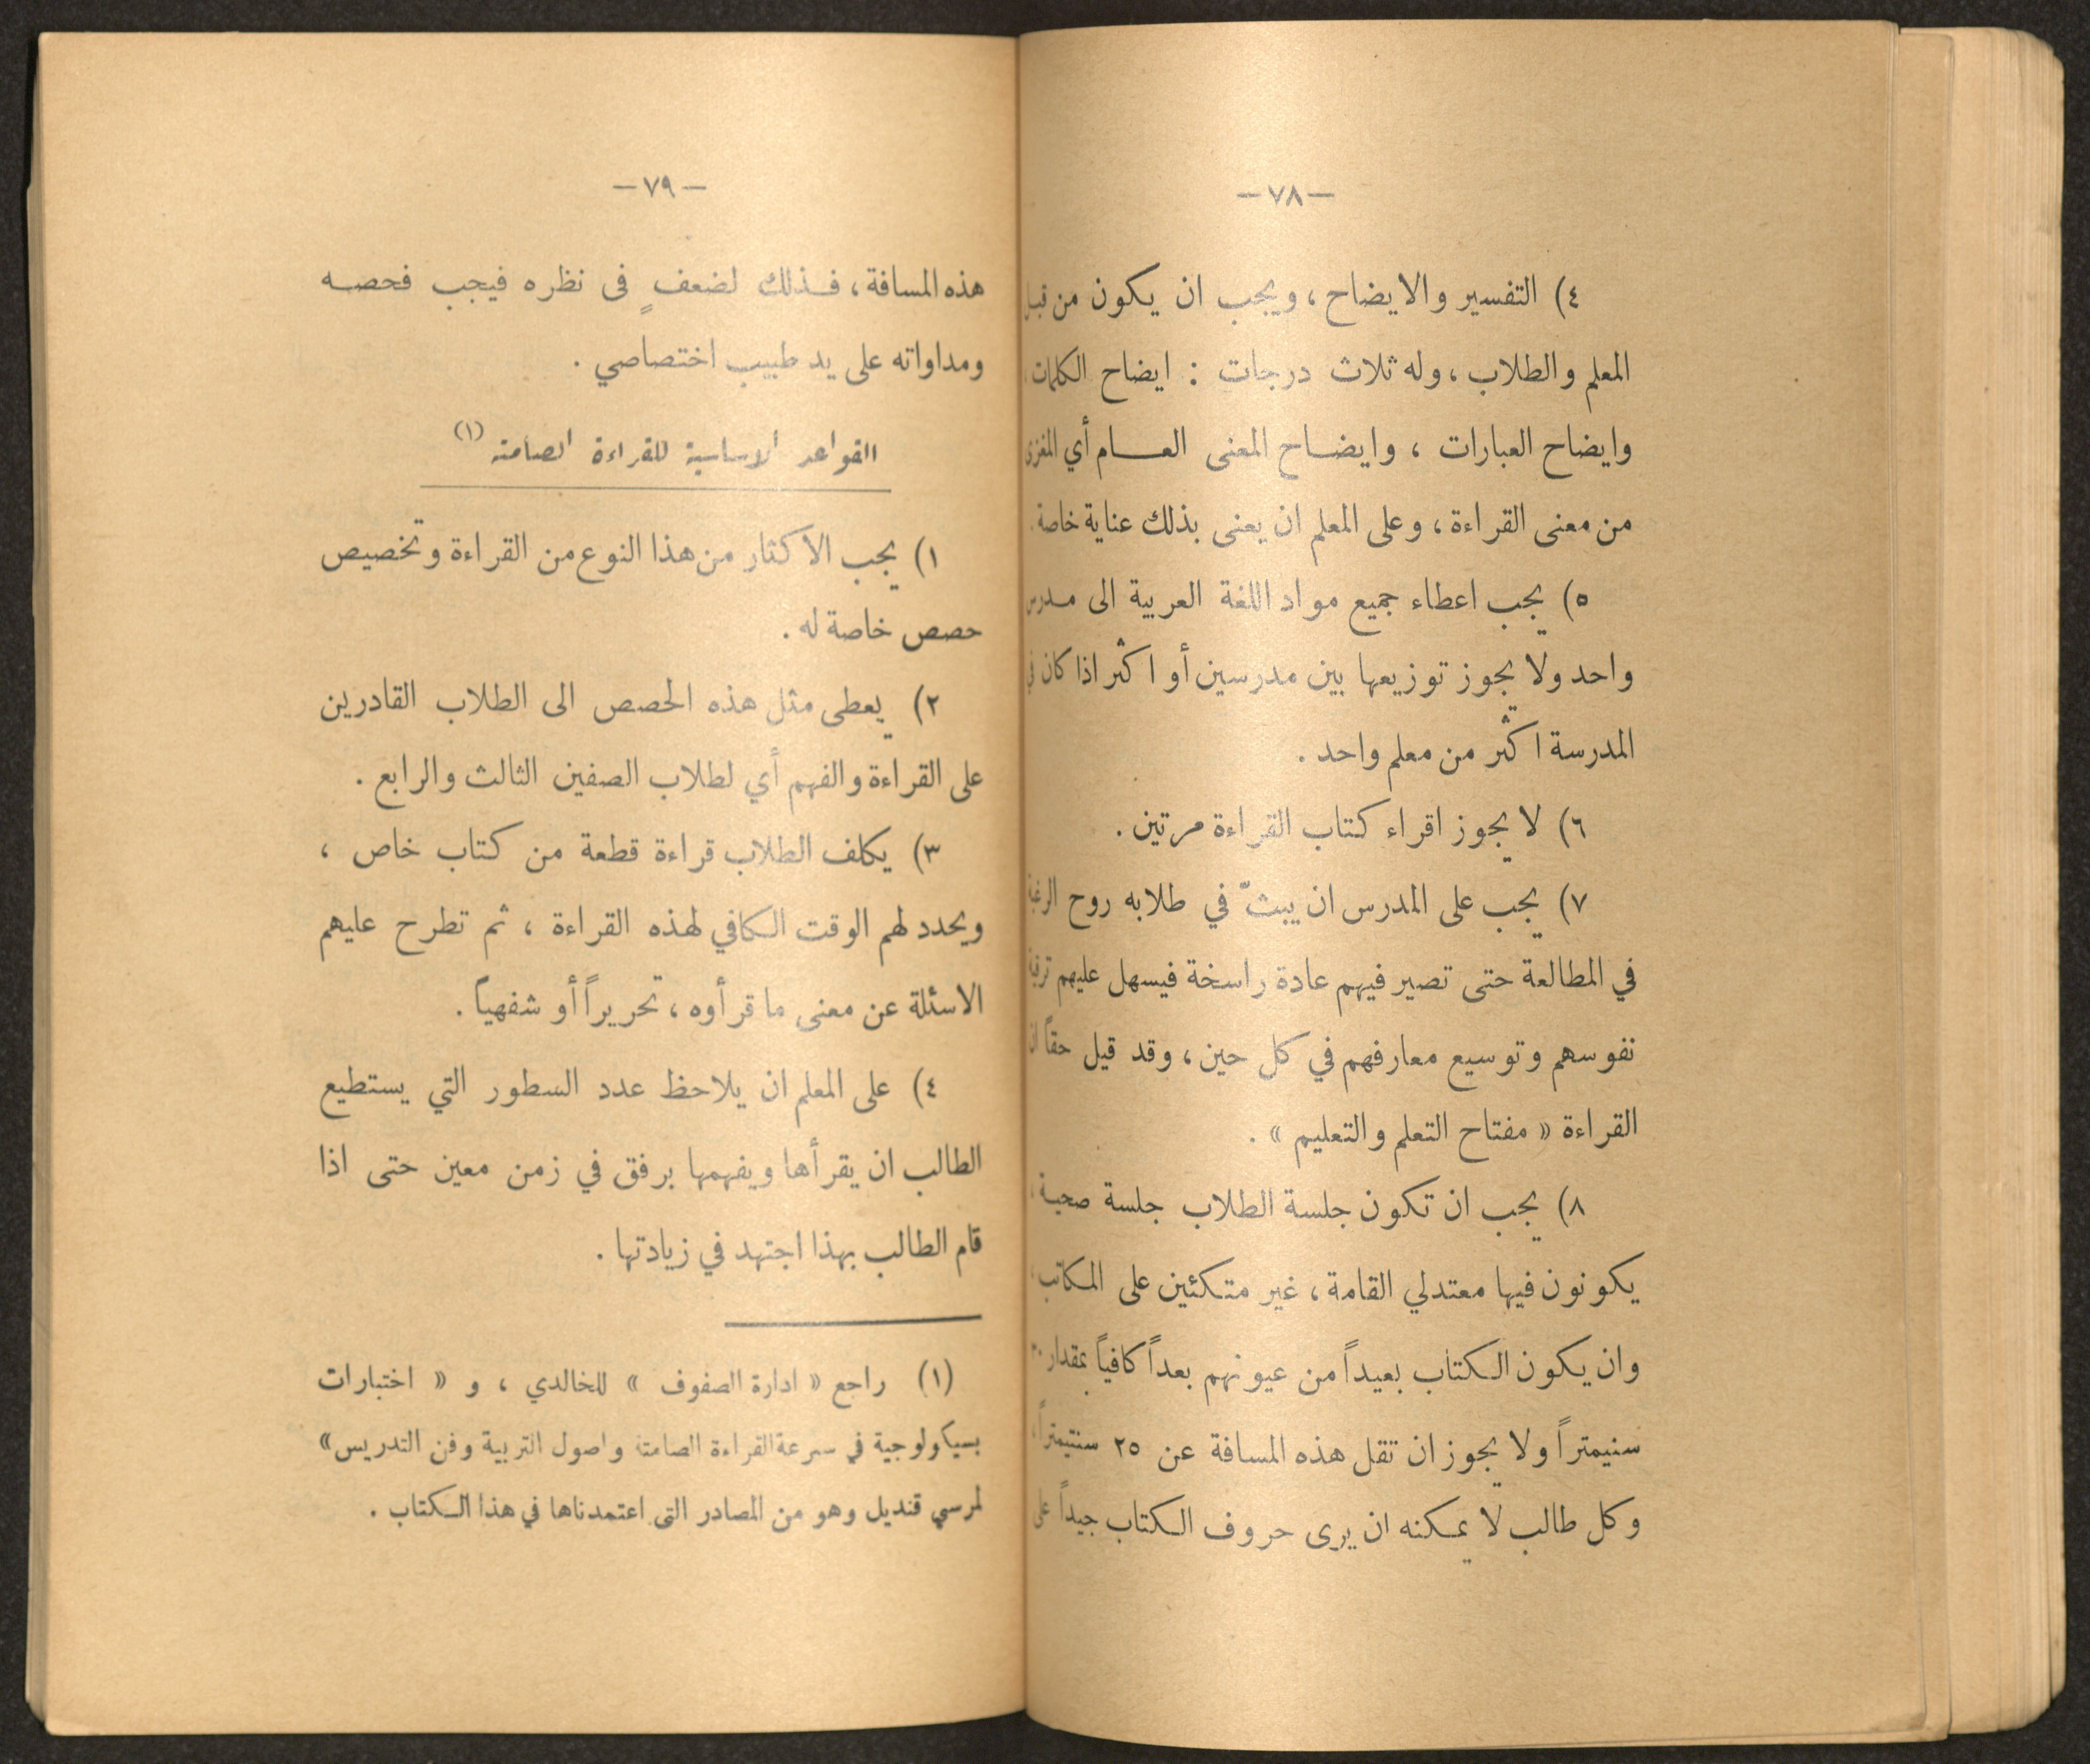 — ٧٨ —
٤) التفسير والايضاح ، ويجب ان يكون من قبل
المعلم والطلاب ، وله ثلاث درجات : ايضاح الكلمات
وايضاح العبارات ، وايضاح المعنى العام أي المغزى
من معنى القراءة ، وعلى المعلم ان يعنى بذلك عناية خاصة .
٥) يجب اعطاء جميع مواد اللغة العربية الى مدرس
واحد ولا يجوز توزيعها بين مدرسين أو اكثر اذا كان في
المدرسة اكثر من معلم واحد .
٦) لا يجوز اقراء كتاب القراءة مرتين .
٧) يجب على المدرس ان يبثّ في طلابه روح الرغبة
في المطالعة حتى تصير فيهم عادة راسخة فيسهل عليهم ترقية
نفوسهم وتوسيع معارفهم في كل حين ، وقد قيل حقاً ان
القراءة « مفتاح التعلم والتعليم » .
٨) يجب ان تكون جلسة الطلاب جلسة صحية ،
يكونون فيها معتدلي القامة ، غير متكئين على المكاتب ،
وان يكون الكتاب بعيداً من عيونهم بعداً كافياً بمقدار ٣٠
سنيمتراً ولا يجوز ان تقل هذه المسافة عن ٢٥ سنتيمتراً ،
وكل طالب لا يمكنه ان يرى حروف الكتاب جيداً على
— ٧٩ —
هذه المسافة ، فذلك لضعفٍ فى نظره فيجب فحصه
ومداواته على يد طبيب اختصاصي .
القواعد الاساسية للقراءة الصامتة (١)
١) يجب الاكثار من هذا النوع من القراءة وتخصيص
حصص خاصة له .
٢) يعطى مثل هذه الحصص الى الطلاب القادرين
على القراءة والفهم أي لطلاب الصفين الثالث والرابع .
٣) يكلف الطلاب قراءة قطعة من كتاب خاص ،
ويحدد لهم الوقت الكافي لهذه القراءة ، ثم تطرح عليهم
الاسئلة عن معنى ما قرأوه ، تحريراً أو شفهياً .
٤) على المعلم ان يلاحظ عدد السطور التي يستطيع
الطالب ان يقرأها ويفهمها برفق في زمن معين حتى اذا
قام الطالب بهذا اجتهد في زيادتها .
(١) راجع « ادارة الصفوف » للخالدي ، و « اختبارات
بسيكولوجية في سرعة القراءة الصامتة واصول التربية وفن التدريس »
لمرسي قنديل وهو من المصادر التى اعتمدناها في هذا الكتاب .